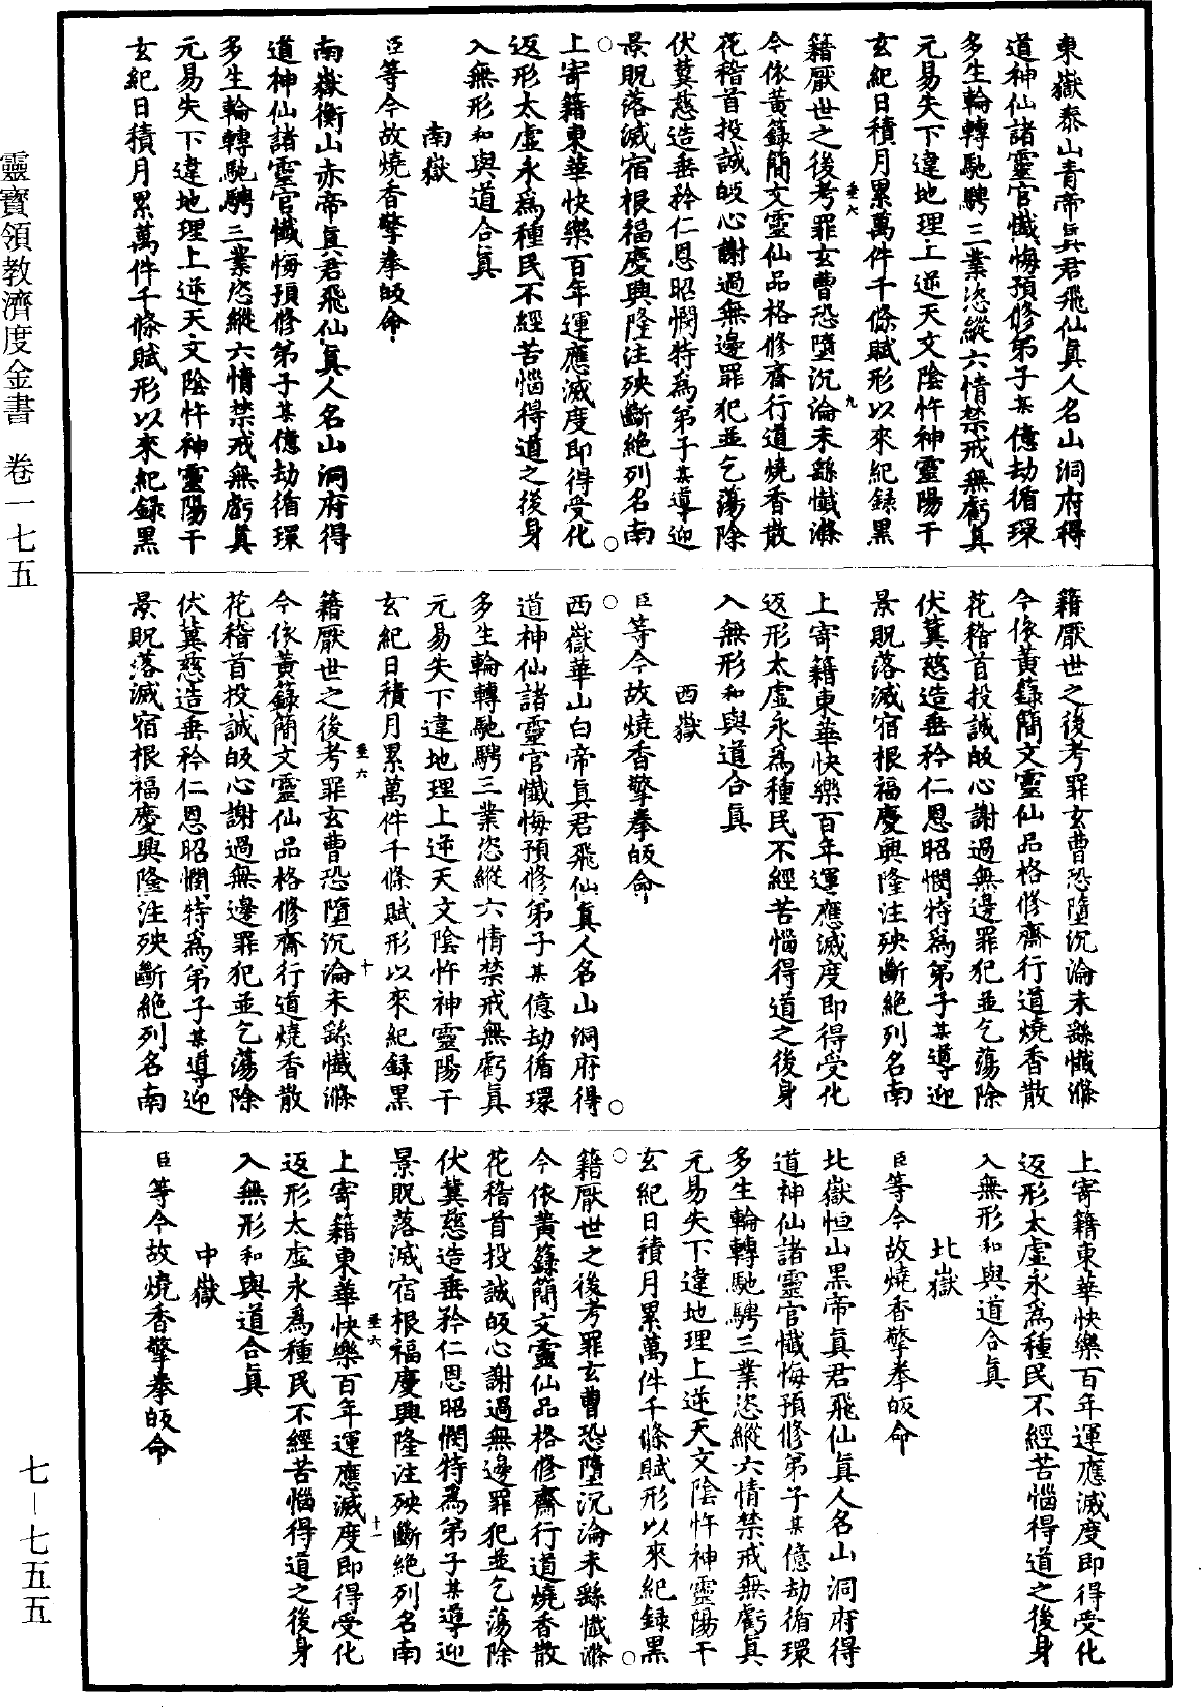 東嶽泰山青帝眞君飛仙眞人名山洞府得
道神仙諸靈官懺悔預修弟子某億劫循環
多生輪轉馳騁三業恣縱六情禁戒無虧眞
元易失下違地理上逆天文陰忤神靈陽干
玄紀日積月累萬件千條賦形以來紀録黑
籍厭世之後考罪玄曹恐墮沉淪未繇懺滌
今依黃籙簡文靈仙品格修齋行道燒香散
花稽首投誠皈心謝過無邊罪犯並乞蕩除
伏冀慈造垂矜仁恩昭憫特爲弟子某導迎
景貺落滅宿根福慶興隆注殃斷絕列名南
上寄籍東華快樂百年運應滅度即得受化
返形太虛永爲種民不經苦惱得道之後身
入無形和與道合眞
南嶽
臣等今故燒香擎拳皈命
南嶽衡山赤帝眞君飛仙眞人名山洞府得
道神仙諸靈官懺悔預修弟子某億劫循環
多生輪轉馳騁三業恣縱六情禁戒無虧眞
元易失下違地理上逆天文陰忤神靈陽干
玄紀日積月累萬件千條賦形以來紀録黑
籍厭世之後考罪玄曹恐墮沉淪未繇懺滌
今依黃籙簡文靈仙品格修齋行道燒香散
花稽首投誠皈心謝過無邊罪犯並乞蕩除
伏冀慈造垂矜仁恩昭憫特爲弟子某導迎
景貺落滅宿根福慶興隆注殃斷絕列名南
上寄籍東華快樂百年運應滅度即得受化
返形太虛永爲種民不經苦惱得道之後身
入無形和與道合眞
西嶽
臣等今故燒香擎拳皈命
西嶽華山白帝眞君飛仙眞人名山洞府得
道神仙諸靈官懺悔預修弟子某億劫循環
多生輪轉馳騁三業恣縱六情禁戒無虧眞
元易失下違地理上逆天文陰忤神靈陽干
玄紀日積月累萬件千條賦形以來紀録黑
籍厭世之後考罪玄曹恐墮沉淪未繇懺滌
今依黃籙簡文靈仙品格修齋行道燒香散
花稽首投誠皈心謝過無邊罪犯並乞蕩除
伏冀慈造垂矜仁恩昭憫特爲弟子某導迎
景貺落滅宿根福慶興隆注殃斷絕列名南
上寄籍東華快樂百年運應滅度即得受化
返形太虛永爲種民不經苦惱得道之後身
入無形和與道合眞
北嶽
臣等今故燒香擎拳皈命
北嶽恒山黑帝眞君飛仙眞人名山洞府得
道神仙諸靈官懺悔預修弟子某億劫循環
多生輪轉馳騁三業恣縱六情禁戒無虧眞
元易失下違地理上逆天文陰忤神靈陽干
玄紀日積月累萬件千條賦形以來紀録黑
籍厭世之後考罪玄曹恐墮沉淪未繇懺滌
今依黃籙簡文靈仙品格修齋行道燒香散
花稽首投誠皈心謝過無邊罪犯並乞蕩除
伏冀慈造垂矜仁恩昭憫特爲弟子某導迎
景貺落滅宿根福慶興隆注殃斷絕列名南
上寄籍東華快樂百年運應滅度即得受化
返形太虛永爲種民不經苦惱得道之後身
入無形和與道合眞
中嶽
臣等今故燒香擎拳皈命
垂六 九
垂六 十
垂六 十一
靈寶領教濟度金書 卷一七五
七—七五五